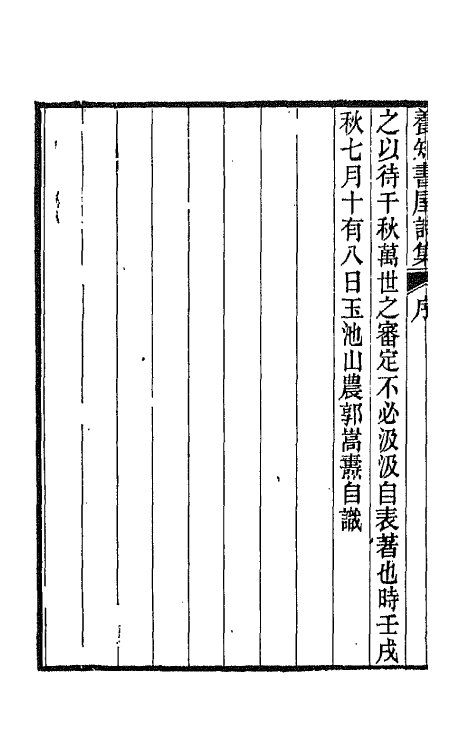 養知書屋詩集 序
之以待千秋萬世之審定不必汲汲自表著也時壬戌
秋七月十有八日玉池山農郭嵩燾自識